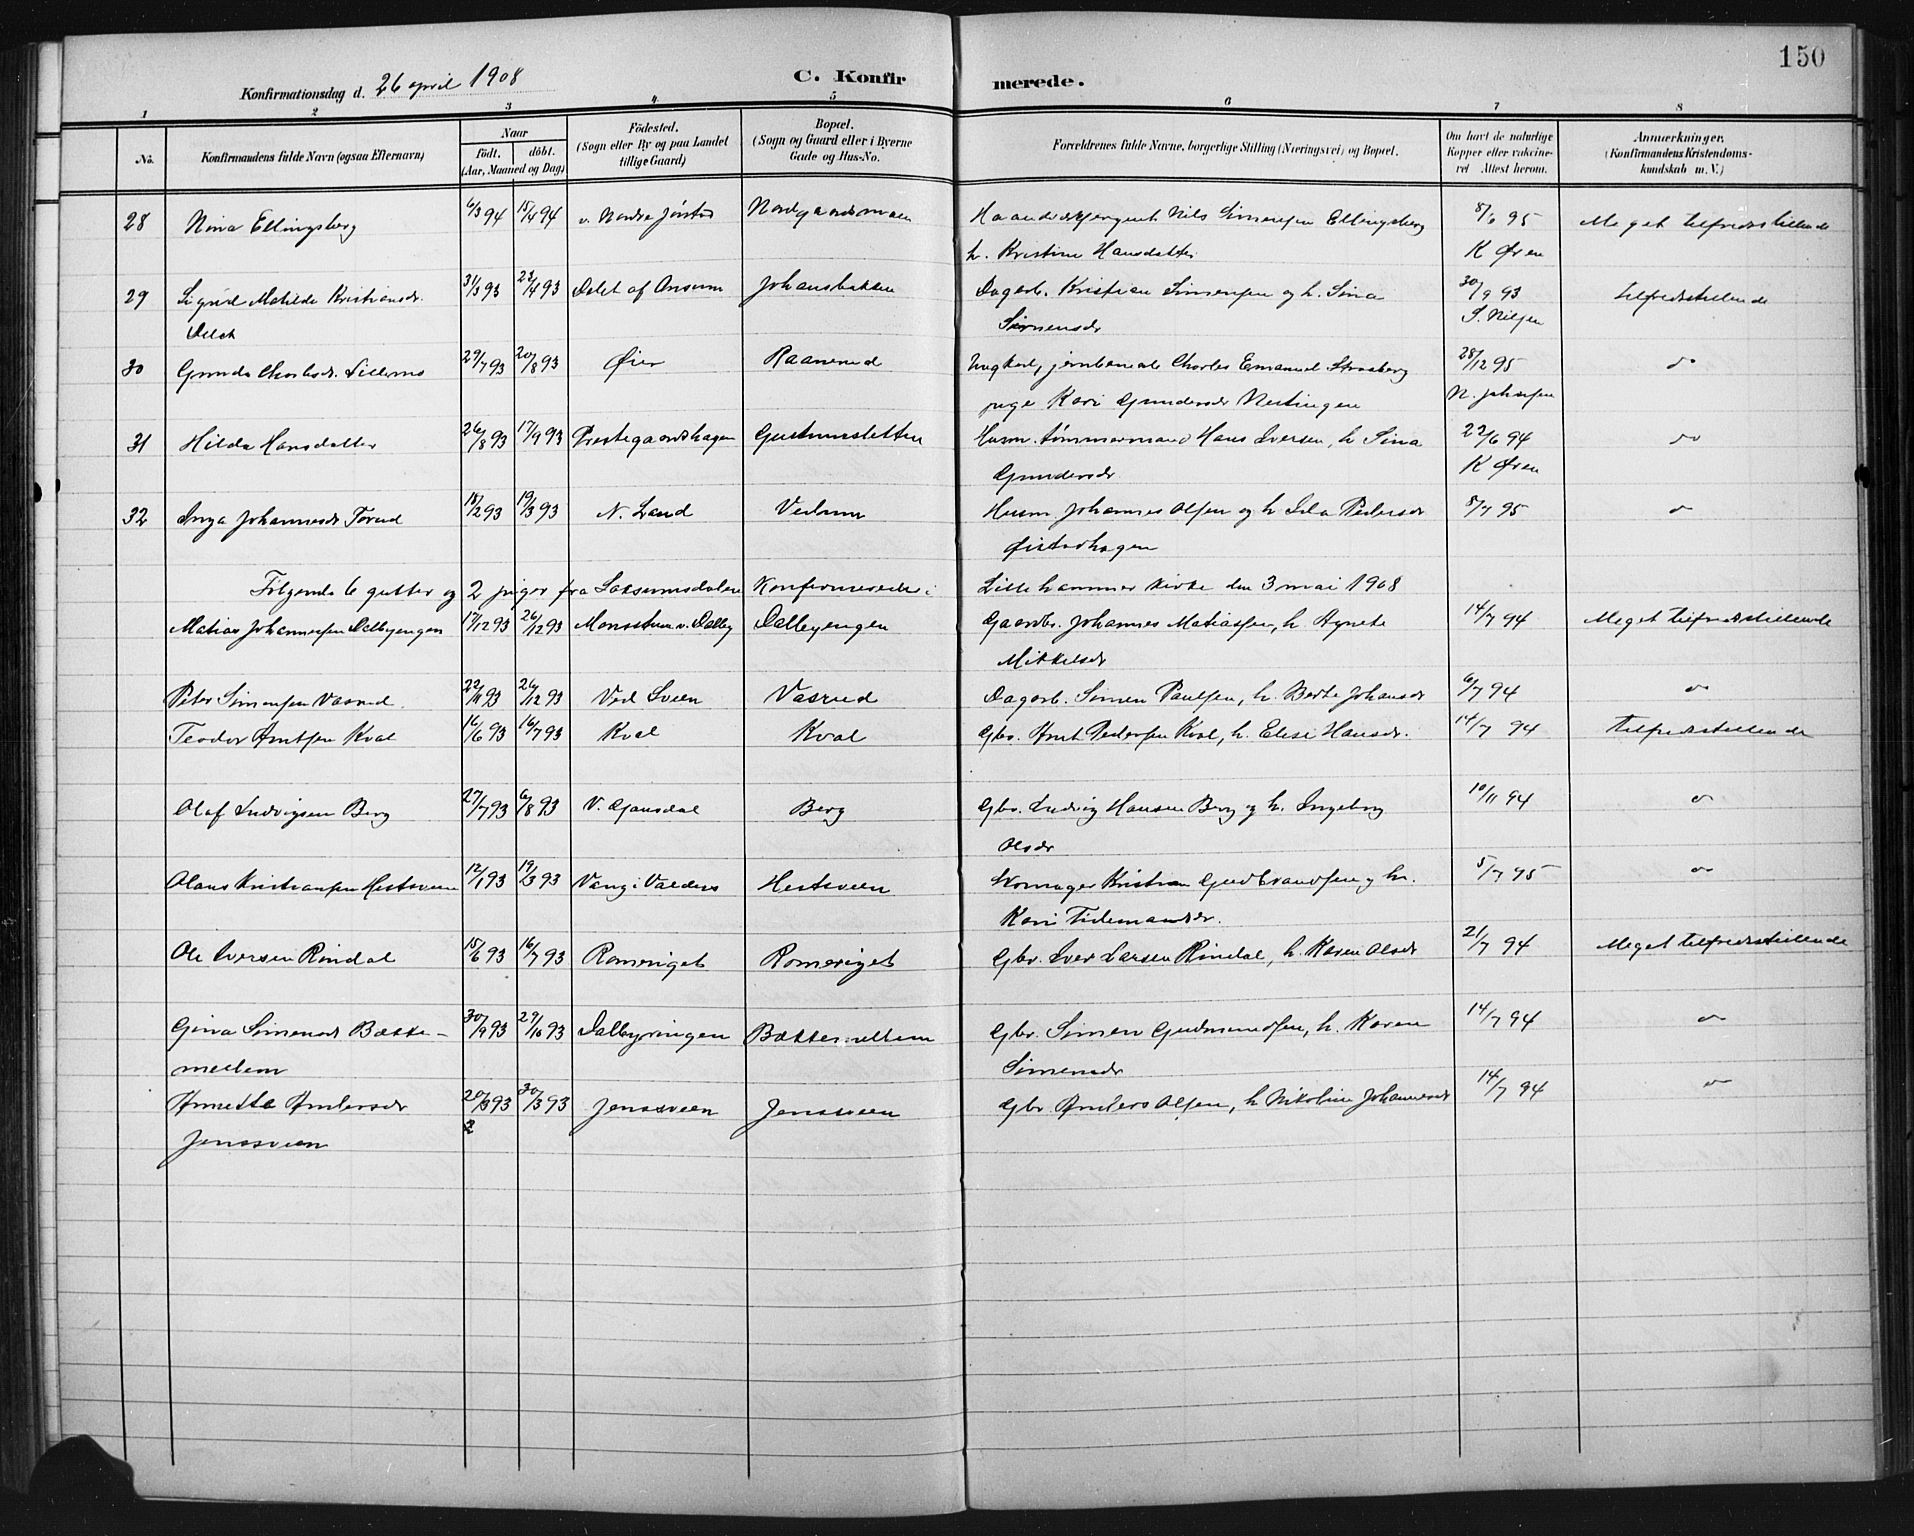 150
Konfirmationsdag d. 26 april 1908 C. Konfir merede.
1 2 3 4 5 6 7 8
No. Konfirmandens fulde Navn (ogsaa Efternavn) Naar Födt. döbt. (Aar, Maaned og Dag) Födested. (Sogn eller By og paa Landet tillige Gaard) Bopæl. (Sogn og Gaard eller i Byerne Gade og Hus-No. Forældrenes fulde Navne, borgerlige Stilling (Næringsvei) og Bopæl. Om havt de naturlige Kopper eller vakcineret Attest herom. Anmærkninger. (Konfirmandens Kristendomskundskab m. V.)
28 Nina Ellingsberg 6/3 94 15/4 94 v. Nordre Jørstad Nordgaardsmoen Nils Simensen Ellingsberg 8/6 95 Meget tilfredsstillende
h. Kristine Hansdatter K Øren
29 Sigrid Matilde Kristiansdr. 31/3 93 23/4 93 Dalet af Onsum Johansbakken Dagarb. Kristian Simensen og h. Sina 30/9 93 tilfredsstillende
Simensdr S. Nilsen
30 29/7 93 20/8 93 Øier Raanerud Ungkarl, jernbanearb Charles Emanuel Strasberg 28/12 95 do
pige Kari Gundersdr Nestingen N. Johnsen
31 Hilda Hansdatter 26/8 93 17/9 93 Prestegaardshagen Gustumsletten Husm. tømmermand Hans Iversen, h Sina 22/6 94 do
Gundersdr K Øren
32 Inga Johannesdr Torud 18/2 93 19/3 93 N. Land Vedum Husm. Johannes Olsen og h Ida Pedersdr 8/7 95 do
Øistadhagen
Følgende 6 gutter og 2 piger fra Saksumsdalen Konfirmerede i Lillehammer kirke den 3 mai 1908
Matias Johannesen Dalbyengen 17/12 93 26/12 93 Monsstuen v. Dalby Dalbyengen Gaardbr. Johannes Matiassen, h. Agnete 14/7 94 Meget tilfredsstillende
Mikkelsdr
Peter Simensen Vasrud 22/11 93 26/12 93 Ved Sveen Vasrud Dagarb. Simen Paulsen, h. Berte Johansdr 6/7 94 do
Teodor Arntsen Kval 16/6 93 16/7 93 Kval Kval Gbr. Arnt Pedersen Kval, h. Elise Hansdr. 14/7 94 tilfredsstillende
Olaf Ludvigsen Berg 27/7 93 6/8 93 V. Gausdal Berg Gbr. Ludvig Hansen Berg og h. Ingeborg 10/11 94 do
Olsdr
Olaus Kristiansen Hestsveen 12/1 93 19/3 93 Vang i Valders Hestsveen Skomager Kristian Gudbrandsen og h. 5/7 95 do
Kari Tidemansdr.
Ole Iversen Rindal 15/6 93 16/7 93 Romeriget Romeriget Gbr. Iver Larsen Rindal, h. Karen Olsdr 21/7 94 Meget tilfredsstillende
Gina Simensdr Bække- 30/9 93 29/10 93 Dalbyringen Bækkemellem Gbr. Simen Gudmundsen, h. Karen 14/7 94 do
mellem Simensdr
Annette Andersdr 20/3 93 30/3 93 Jenssveen Jenssveen Gbr. Anders Olsen, h Nikoline Johannesdr 14/7 94 do
2
Jenssveen